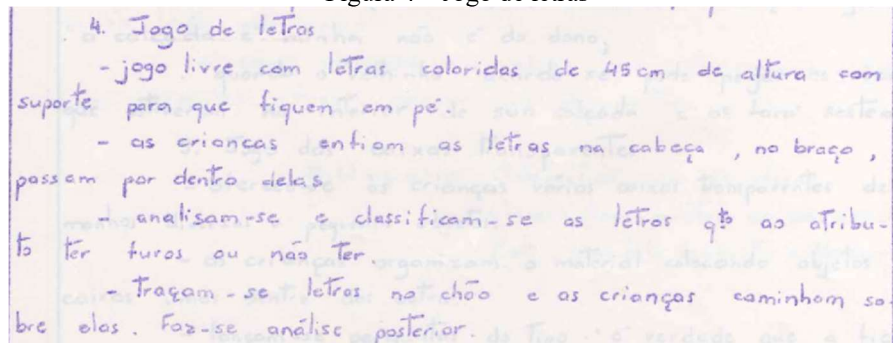 Figura 4 – Jogo de letras
4. Jogo de letras
- jogo livre com letras coloridas de 45 cm de altura com
suporte para que fiquem em pé.
- as crianças enfiam as letras na cabeça, no braço,
passam por dentro delas.
- analisam-se e classificam-se as letras qto ao atribu-
to ter furos ou não ter.
- Traçam-se letras no chão e as crianças caminham so
bre elas. Faz-se análise posterior.